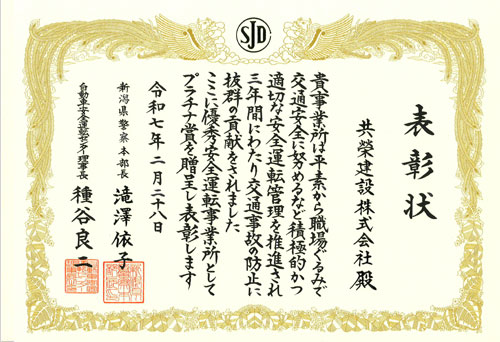 SJD
表彰状
共榮建設株式会社 殿
貴事業所は平素から職場ぐるみで
交通安全に努めるなど積極的かつ
適切な安全運転管理を推進され
三年間にわたり交通事故の防止に
抜群の貢献をされました
ここに優秀安全運転事業所として
プラチナ賞を贈呈し表彰します
令和七年二月二十八日
新潟県警察本部長 滝澤依子
自動車安全運転センター理事長 種谷良二